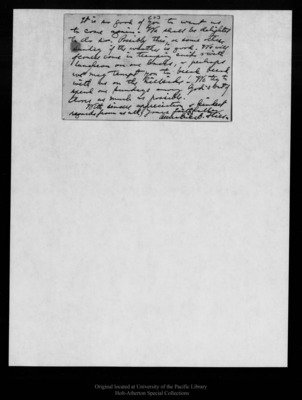 It is so good of you to want us
to come again. We shall be delighted
to do so. Possibly this, or some other
Sunday if the weather is good. We will
of course come in tramping with
luncheon on our backs, & perhaps
we may tempt you to break bread
with us on the hillside. We try to
spend our Sundays among God's
as much as possible.
With sincere appreciation & kindest
regards from us all,
Original located at University of the Pacific Library
Holt-Atherton Special Collections